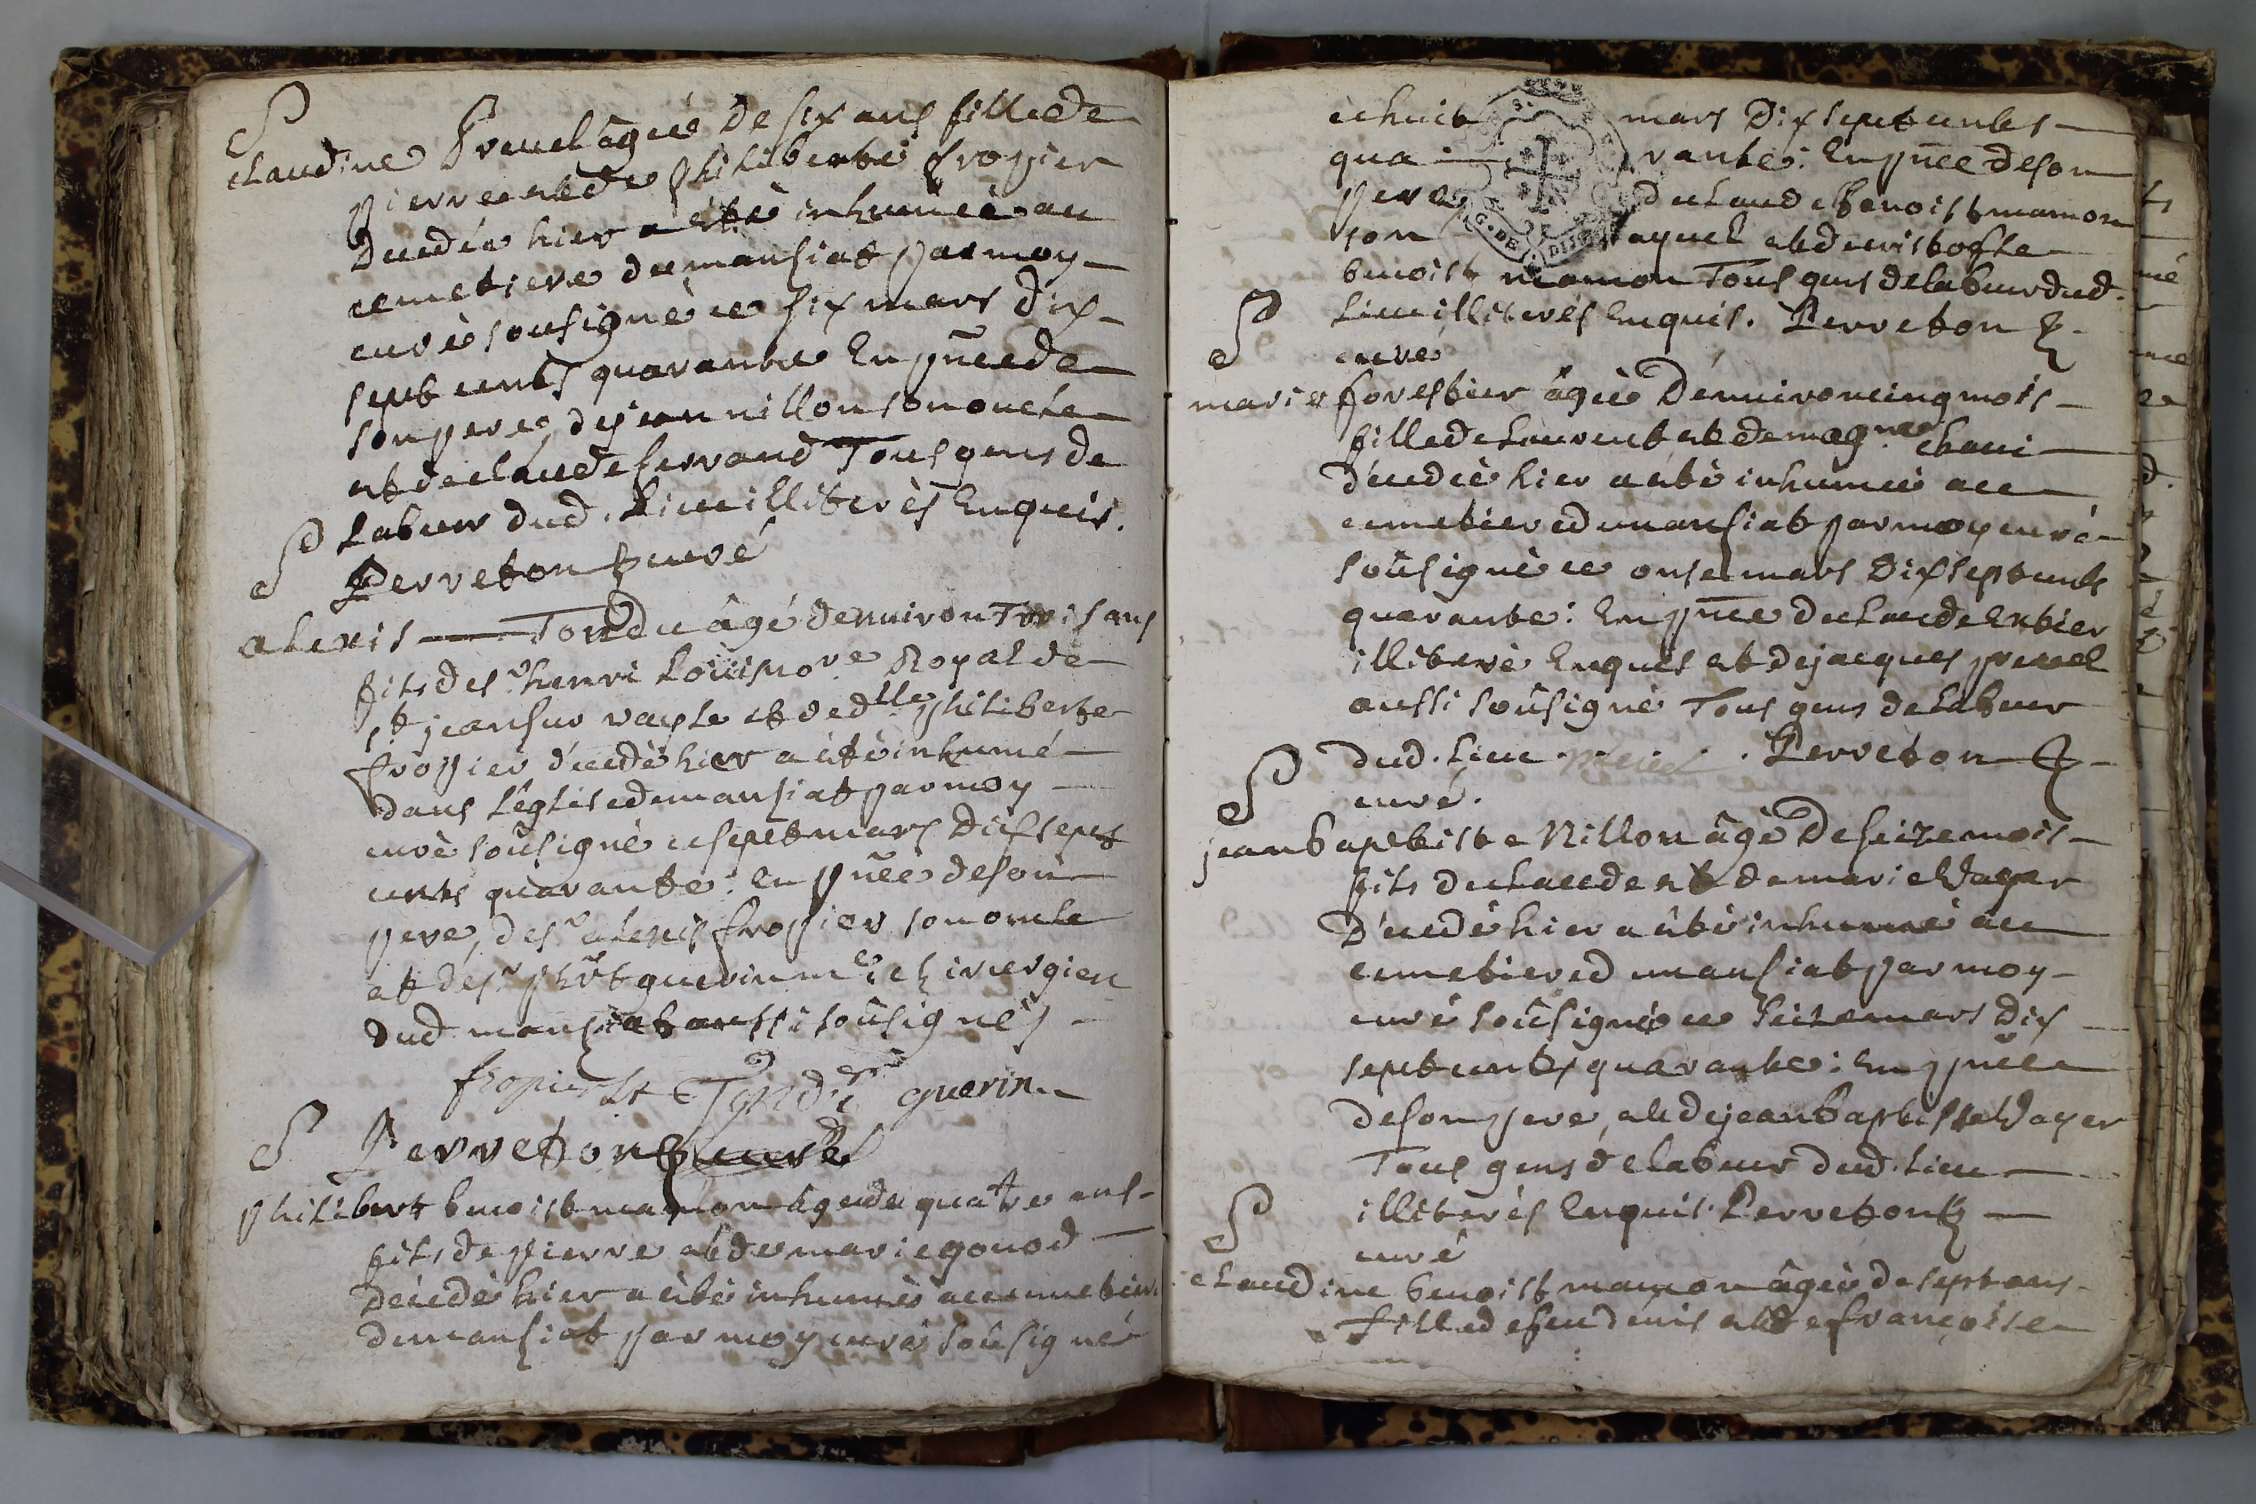 S
claudine Preuel âgée de six ans fille de
pierre et de philiberte fropier
decedée hier a été inhumée au
cemetiere de mansiat par moy
curé sousigné ce six mars dix
sept cents quarante En pñce de
son pere, de jean nillon son oncle
et de claude ferrand Tous gens de
S Labeur dud. Lieu illiterés Enquis.
Perreton curé
alexis Tondu âgé denuiron Trois ans
fils de sr. henri Loüis nore Royal de
st jean sur rayssle et de dlle philiberte
fropier décédé hier a été inhumé
dans L'église de mansiat par moy
curé soûsigné ce sept mars dix sept
cents quarante: En pñce de son
pere, de sr alexis fropier son oncle
et de sr phbt guerin me chirurgien
dud mansiat aussi soûsignés
fropier Tondu guerin
S Perreton curé
philibert benoist mamon âgé de quatre ans
fils de pierre et de marie gonod
décédé hier a été inhumé au cemetiere
de mansiat par moy curé soûsigné
ce huit mars dix sept cents
quarante: En pñce de son
pere de claude benoist mamon
son et de cristofle
benoist mamon Tous gens de labeur dud.
S Lieu illiterés Enquis. Perreton
cure
marie forestier âgée d'enuiron cinq mois
fille de Laurent et de magne chani
décédée hier a eté inhumée au
cemetiere de mansiat par moy curé
soûsigné ce onse mars dix sept cents
quarante: En pñce de claude Entier
illiteré Enquis et de jacques preuel
aussi soûsigné Tous gens de Labeur
S dud. Lieu preuel. Perreton
curé.
jean baptiste Nillon âgé de seize mois
fils de claude et de marie Vayer
décédé hier a été inhumé au
cemetiere de mansiat par moy
curé soûsigné ce seize mars dix
sept cents quarante: En pñce
de son pere, et de jean baptiste Vayer
Tous gens de Labeur dud. Lieu
S illiterés Enquis. Perreton
curé
claudine benoist mamon âgée de sept ans
fille de feu denis et de françoise